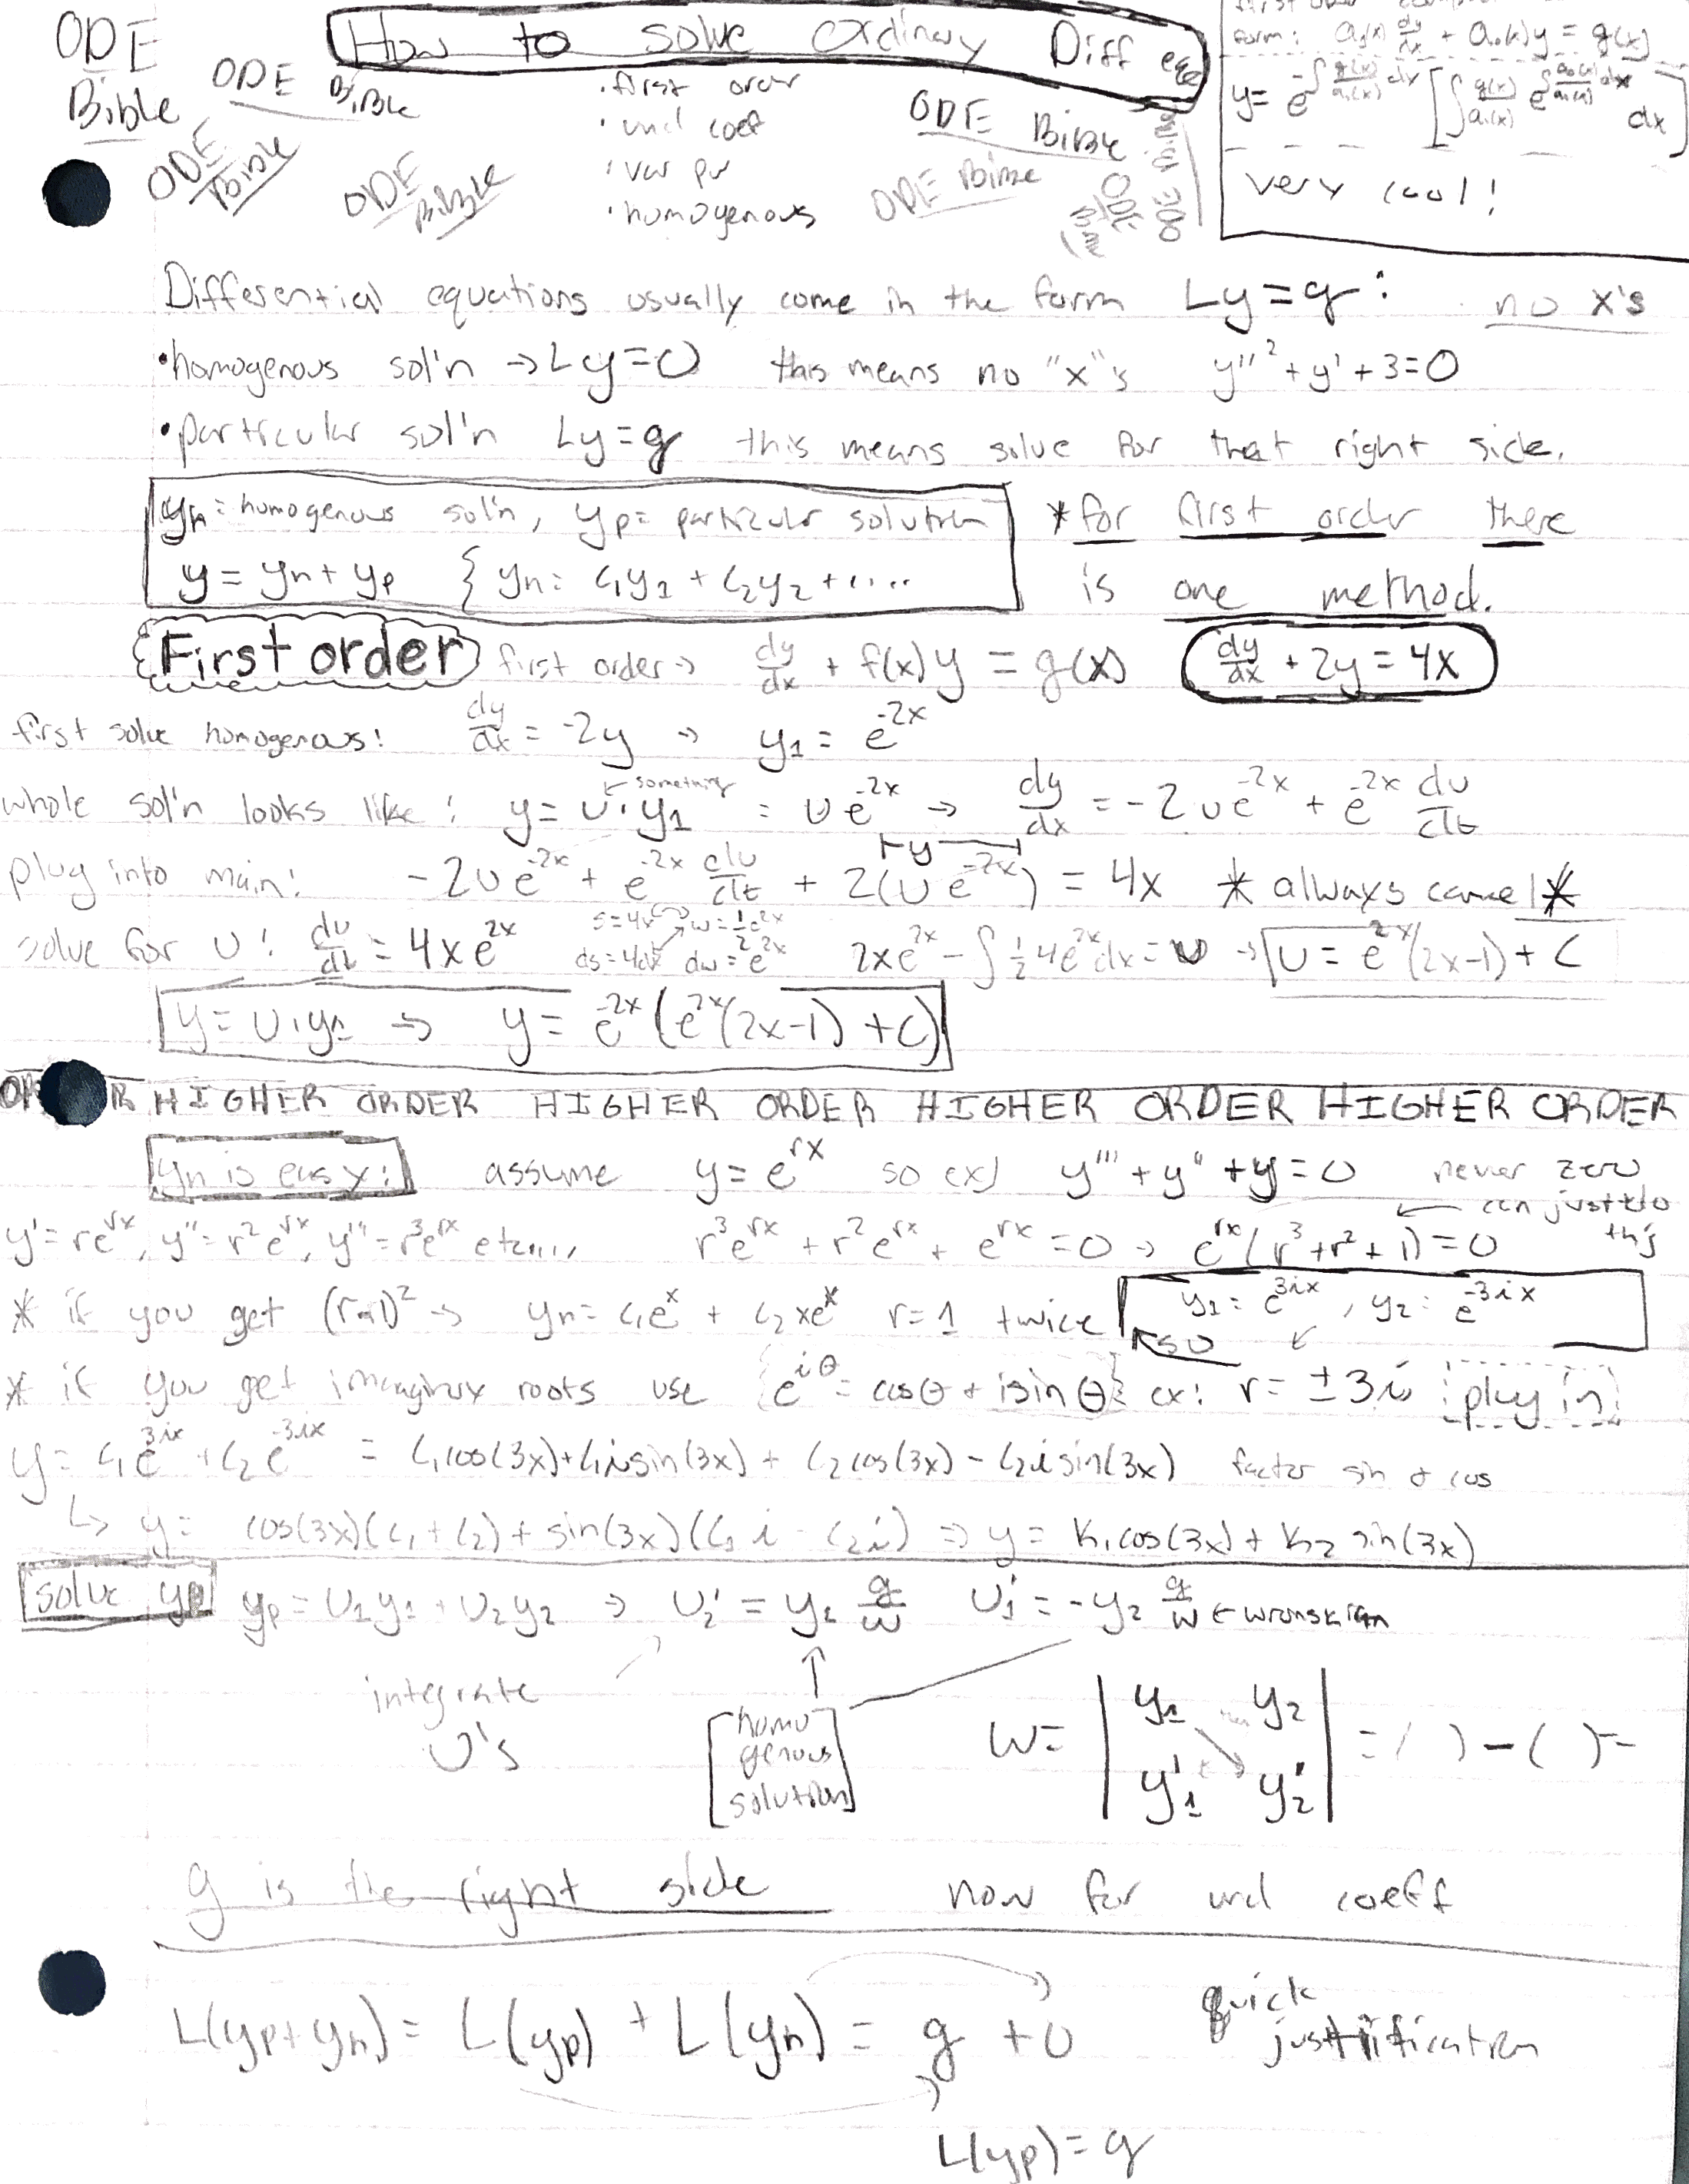 ODE Bible
How to solve ordinary Diff eqs
ODE Bible
ODE Bible
ODE Bible
ODE Bible
ODE Bible
ODE Bible
ODE
• first order
• und coef
• var par
• homogenous
form: a₁(x) dy/dx + a₀(x)y = g(x)
y = e^(-∫ g(x)/a₁(x) dx) [∫ g(x)/a₁(x) e^(∫ a₀(x)/a₁(x) dx) dx]
very cool!
Differential equations usually come in the form Ly=g: no x's
• homogenous sol'n → Ly=0 this means no "x"s y''² + y' + 3 = 0
• particular sol'n Ly=g this means solve for that right side.
yh = homogenous sol'n, yp = particular solution
y = yh + yp { yh = c₁y₁ + c₂y₂ + ....
* for first order there
is one method.
First order first order → dy/dx + f(x)y = g(x) dy/dx + 2y = 4x
first solve homogenous: dy/dx = -2y → y₁ = e^(-2x)
whole sol'n looks like: y = u·y₁ = ue^(-2x) → dy/dx = -2ue^(-2x) + e^(-2x) du/dt
something
plug into main: -2ue^(-2x) + e^(-2x) du/dt + 2(ue^(-2x)) = 4x * always cancel *
y
solve for u: du/dt = 4xe^(2x) s=4x w=½e^(2x) ds=4dx dw=e^(2x) 2xe^(2x) - ∫½4e^(2x)dx = u → u = e^(2x)(2x-1) + C
y = u·y₁ → y = e^(-2x)(e^(2x)(2x-1) + C)
HIGHER ORDER HIGHER ORDER HIGHER ORDER HIGHER ORDER
yh is easy: assume y = e^(rx) so ex) y''' + y'' + y = 0 never zero
can just do this
y' = re^(rx), y'' = r²e^(rx), y''' = r³e^(rx) etc.... r³e^(rx) + r²e^(rx) + e^(rx) = 0 → e^(rx)(r³ + r² + 1) = 0
* if you get (r-1)² → yh = c₁e^x + c₂xe^x r=1 twice
y₁ = e^(3ix), y₂ = e^(-3ix)
so
* if you get imaginary roots use {e^(iθ) = cosθ + isinθ} ex: r = ±3i plug in
y = c₁e^(3ix) + c₂e^(-3ix) = c₁cos(3x) + c₁isin(3x) + c₂cos(3x) - c₂isin(3x) factor sin & cos
↳ y = cos(3x)(c₁ + c₂) + sin(3x)(c₁i - c₂i) ⇒ y = k₁cos(3x) + k₂sin(3x)
solve yp yp = u₁y₁ + u₂y₂ → u₂' = y₁ g/w u₁' = -y₂ g/w ← wronskian
integrate
u's
homo
genous
solution
w = | y₁ y₂ | = ( ) - ( ) =
| y₁' y₂' |
g is the right side now for und coeff
L(yp+yh) = L(yp) + L(yh) = g + 0 quick
justification
L(yp) = g